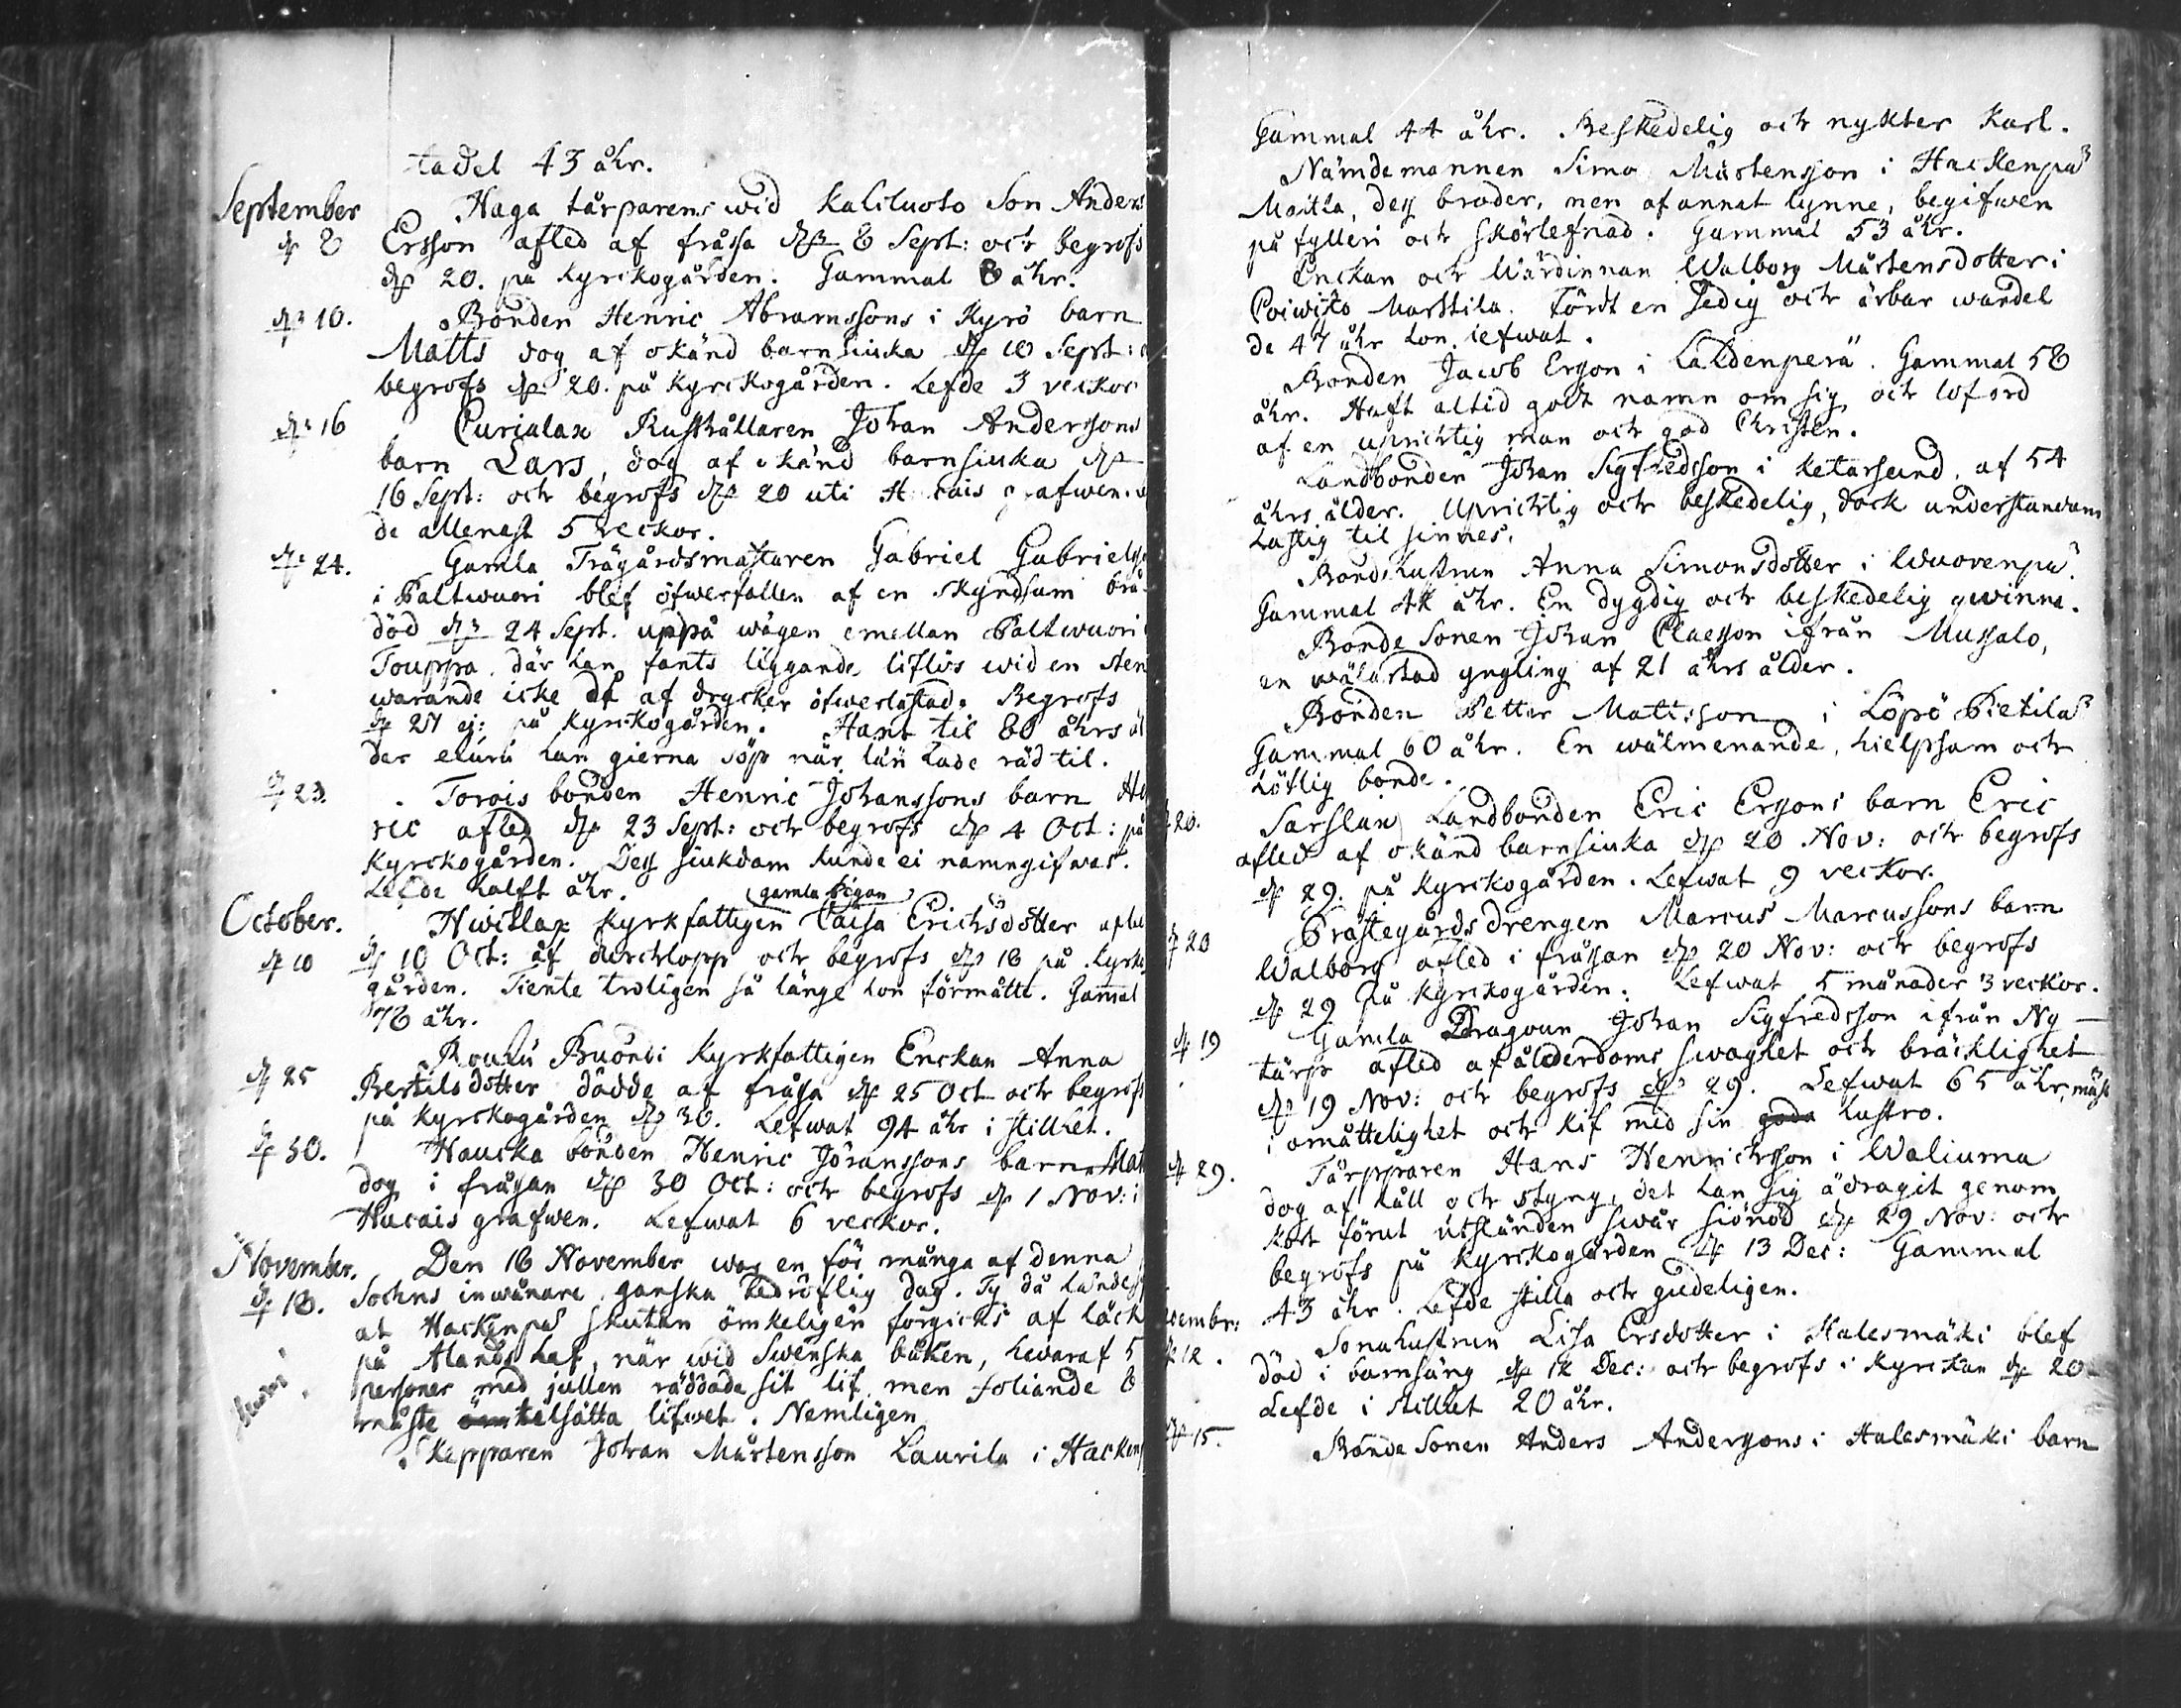 tadel 43 åhr.
September
Haga tårparens wid Kaliluoto Son Anders
d 8 Ersson afled af fråssa d 8 Sept: och begrofs
d 20. på Kyrckogården. Gammal 8 åhr.
d 10. Bonden Henric Abramssons i Kyrö barn
Matts dog af okänd barnsiuka d 10 Sept:
begrofs d 20. på Kyrckogården. Lefde 3 veckor
d 16 Curialax Rusthållaren Johan Anderssons
barn Lars, dog af okänd barnsiuka d
16 Sept: och begrofs d 20 uti grafwen.
de allenast 5 veckor.
d 24. Gamla Trägårdsmästaren Gabriel Gabriels
i Paltwuori blef öfwerfallen af en skyndsam brå
död d 24 Sept. uppå wägen emellan Paltwuori
Touppa, där han fants liggande liflös wid en sten
warande icke då af drycker öfwerlastad. Begrofs
d 27 ej: på Kyrckogården. Hant til 80 åhrs ål
der ehuru han gierna söp när han hade råd til.
d 23. Torois bonden Henric Johanssons barn He
ric afled d 23 Sept: och begrofs d 4 Oct: på
Kyrckogården. Dess siukdom kunde ei namngifwas.
Lefde halft åhr.
gamla Pigan
October. Hwitlax Kyrkfattigen Caisa Erichsdotter afled
d 10 d 10 Oct: af durchlopp och begrofs d 18 på Kyrko
gården. Tiente troligen så länge hon förmåtte. Gamal
78 åhr.
Rouhu Buondi Kyrkfattigen Enckan Anna
d 25 Bertilsdotter dödde af fråssa d 25 Oct och begrofs
på Kyrckogården d 30. Lefwat 94 åhr i stillhet.
d 30. Haucka bonden Henric Jöranssons barn Mat
dog i fråssan d 30 Oct: och begrofs d 1 Nov: i
Hucais grafwen. Lefwat 6 veckor.
November. Den 18 November war en för många af denna
d 18. Sochns inwånare ganska bedröflig dag. Ty då hände
at Hackenpä skutan ömkeligen förgicks af läck
på Alands haf, när wid Swenska båken, hwaraf 5
personer med jullen räddade sit lif, men foliande 8
måste tilsätta lifwet. Nemligen
Skepparen Johan Mårtensson Laurila i Hacken
Gammal 44 åhr. Beskedelig och nykter Karl.
Nämdemannen Simo Mårtensson i Hackenpä
Maitla, dess broder, men af annat lynne, begifwen
på fylleri och skörlefnad. Gammal 53 åhr.
Enckan och Wärdinnan Walborg Mårtensdotter i
Poiwisto Marttila. Fördt en sedig och ärbar wandel
de 47 åhr hon lefwat.
Bonden Jacob Ersson i Laldenperä. Gammal 58
åhr. Haft altid godt namn om sig och loford
af en uprichtig man och god Christen.
Landbonden Johan Sigfredsson i Ketarsund, af 54
åhrs ålder. Uprichtig och beskedelig, dock understundom
hastig til sinnes.
Bondhustrun Anna Simonsdotter i Wuorenpä.
Gammal 4 åhr. En dygdig och beskedelig qwinna.
Bonde Sonen Johan Claesson ifrån Mussalo,
en wälartad yngling af 21 åhrs ålder.
Bonden Petter Mattsson i Löpö Pietilä
Gammal 60 åhr. En wälmenande, hielpsam och
höflig bonde.
20. Sarslax Landbonden Eric Erssons barn Eric
afled af okänd barnsiuka d 20 Nov: och begrofs
d 29. på Kyrckogården. Lefwat 9 veckor.
d 20 Prästegårds drengen Marcus Marcussons barn
Walborg afled i fråssan d 20 Nov: och begrofs
d 29 på Kyrckogården. Lefwat 5 månader 3 veckor.
d 19 Gamla Dragoun Johan Sigfredsson ifrån Ny
tårp afled af ålderdoms swaghet och bräcklighet
d 19 Nov: och begrofs d 29. Lefwat 65 åhr, mäst
i omåttelighet och Kif med sin goda hustro.
d 29. Tårpparen Hans Henrichsson i Waliuma
dog af håll och styng, det han sig ådragit genom
kort förut utstånden swår siönöd d 29 Nov: och
begrofs på Kyrckogården d 13 Dec: Gammal
43 åhr. Lefde stilla och gudeligen.
cembr: Sonahustrun Lisa Ersdotter i Halesmäki blef
d 12. död i barnsäng d 12 Dec: och begrofs i Kyrckan d 20
Lefde i stillhet 20 åhr.
d 15. Bonde Sonen Anders Anderssons i Halesmäki barn